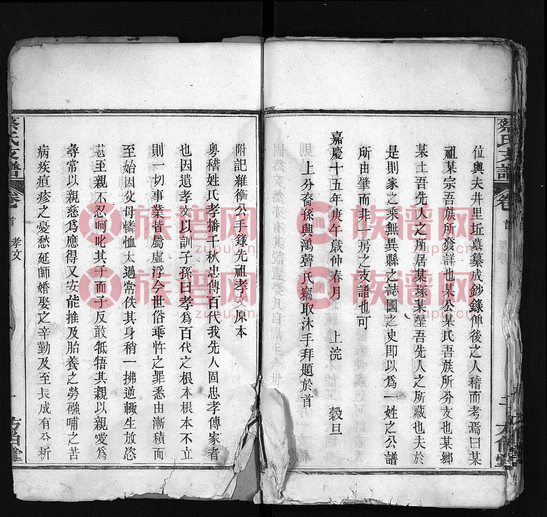 蔡氏支譜
卷首
位與夫井里坵墓墓成鈔錄俾後之人稽而考焉曰某
祖某宗吾族所發祥也某公某氏吾族所分支也某鄉
某土吾先人之所居某縣某塋吾先人之所藏也夫於
是則家之乘無異縣之誌國之史即以為一姓之公譜
所由肇而非一房之支譜也可
嘉慶十五年庚午歲仲春月 上浣 穀旦
上分裔孫興鴻聲氏 取沐手拜題於首
附記維 公手錄先祖孝文原本
粵稽姓氏孝播千秋忠傳百代我先人固忠孝傳家者
也因遺孝文以訓子孫曰孝為百代之根本根本不立
則一切事業皆屬虛浮今世俗乖忤之罪悉由漸積而
至始因父母憐恤太過常佚其身稍一拂逆輒生放恣
甚至親不忍呵叱其子而子反敢牴牾其親以親愛為
尋常以親慈為應得又安能推及胎養之勞 哺之苦
病疾疽疹之憂愁延師婚娶之辛勤及至長成有分析
蔡氏支譜
卷首
孝文